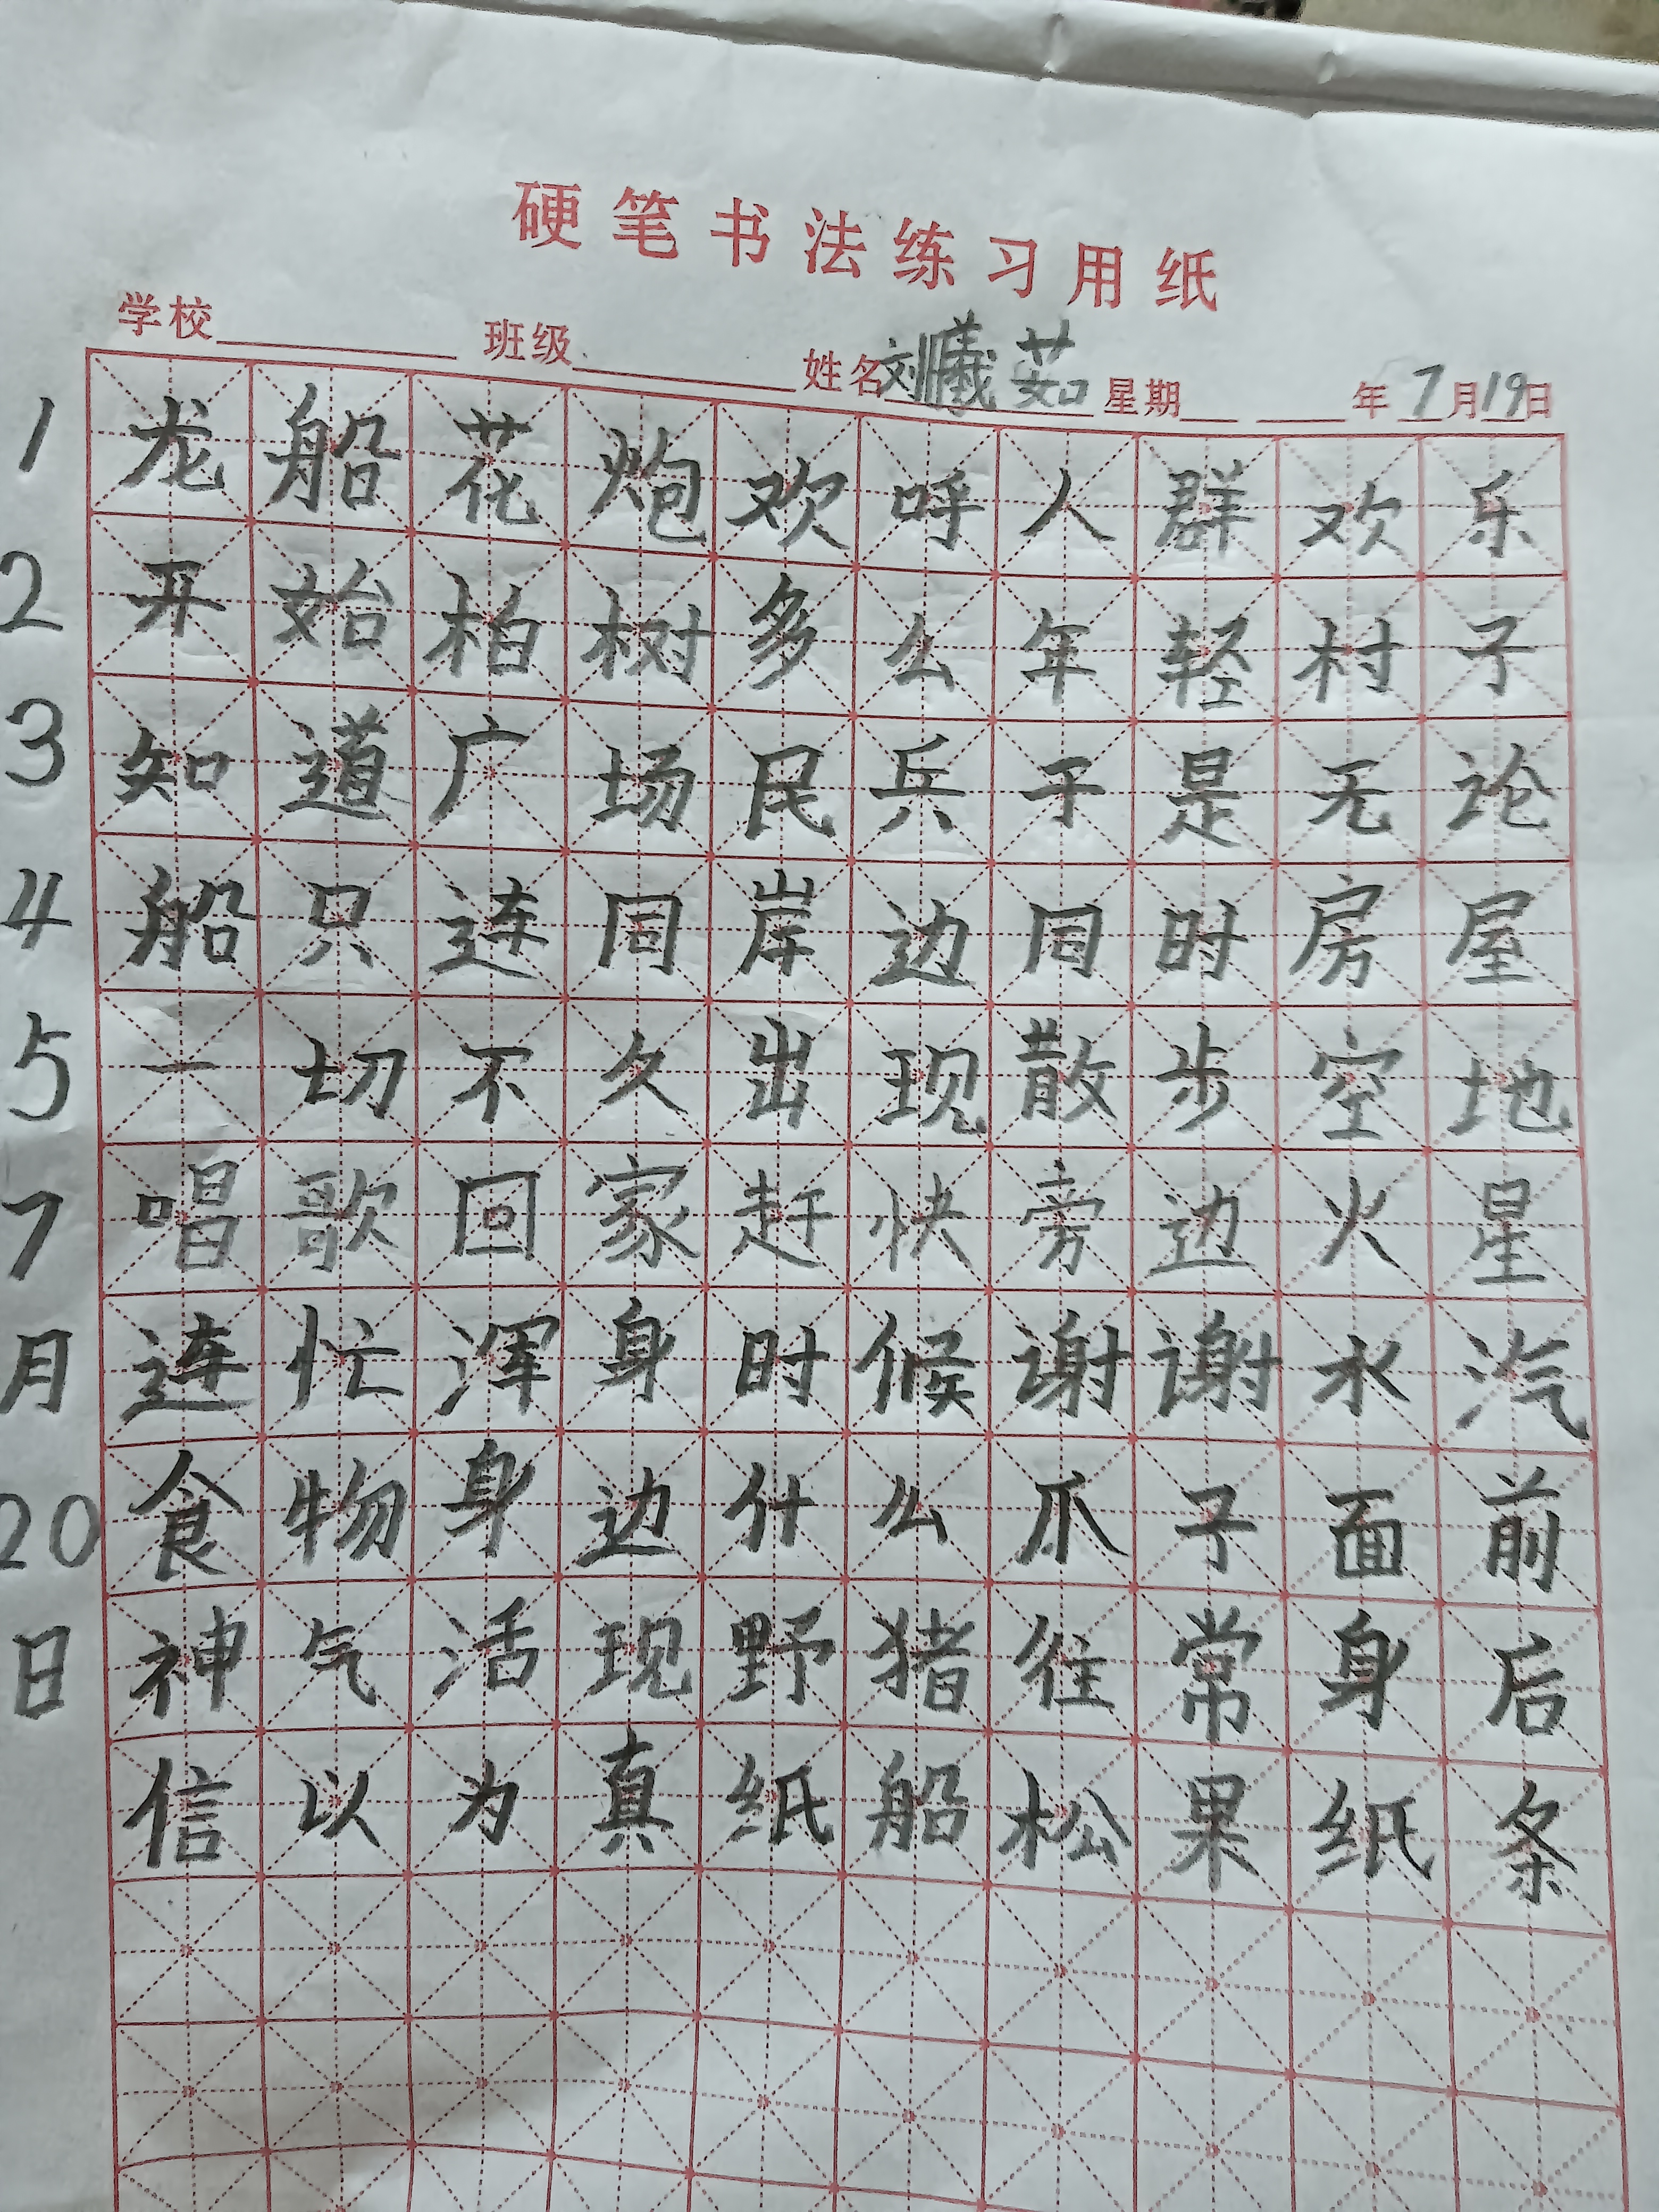 硬笔书法练习用纸
学校 班级 姓名刘曦茹 星期 年7月19日
1 龙船花炮欢呼人群欢乐
2 开始柏树多么年轻村子
3 知道广场民兵于是无论
4 船只连同岸边同时房屋
5 一切不久出现散步空地
7 唱歌回家赶快旁边火星
月 连忙浑身时候谢谢水汽
20 食物身边什么爪子面前
日 神气活现野猪往常身后
信以为真纸船松果纸条